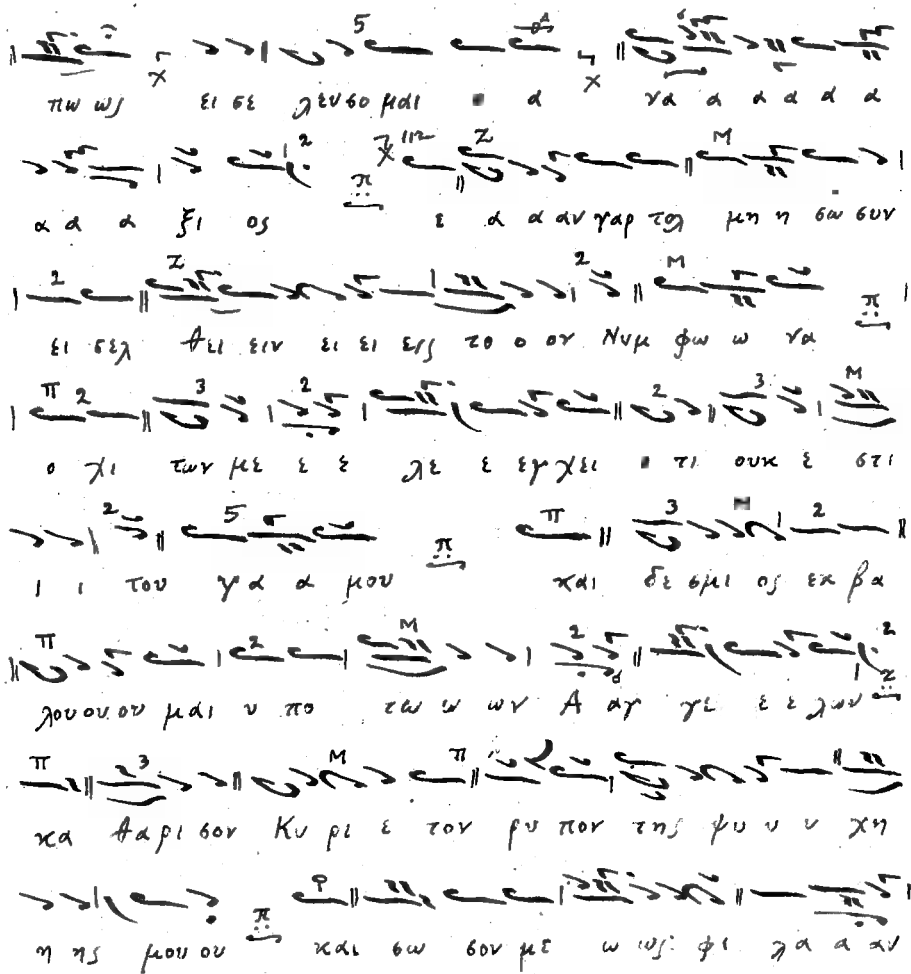 πω ως ει σε λευσο μαι α να α α α α α
α α α ξι ος ε α α αν γαρ τολ μη η σω συν
ει σελ θει ειν ει ει εις το ο ον Νυμ φω ω να
ο χι των με ε ε λε ε εγ χει τι ουκ ε στι
ι ι του γα α μου και δε σμι ος εκ βα
λου ου ου μαι υ πο τω ω ων Α αγ γε ε ε λων
κα θα ρι σον Κυ ρι ε τον ρυ πον της ψυ υ υ χη
η ης μου ου και σω σον με ω ως φι λα α αν